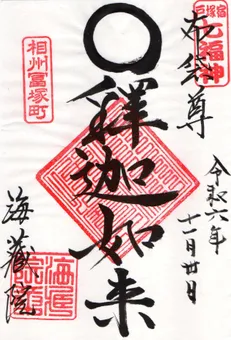 戸塚宿
七福神
布袋尊
令和六年
十一月廿日
釋迦如来
相州冨塚町
海蔵院